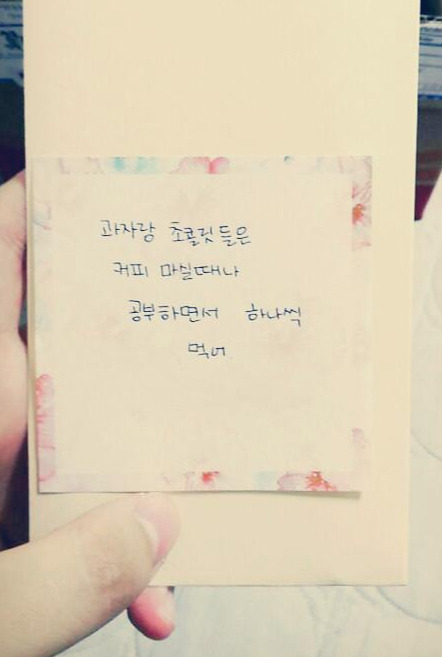 과자랑 초콜릿들은
커피 마실때나
공부하면서 하나씩
먹어